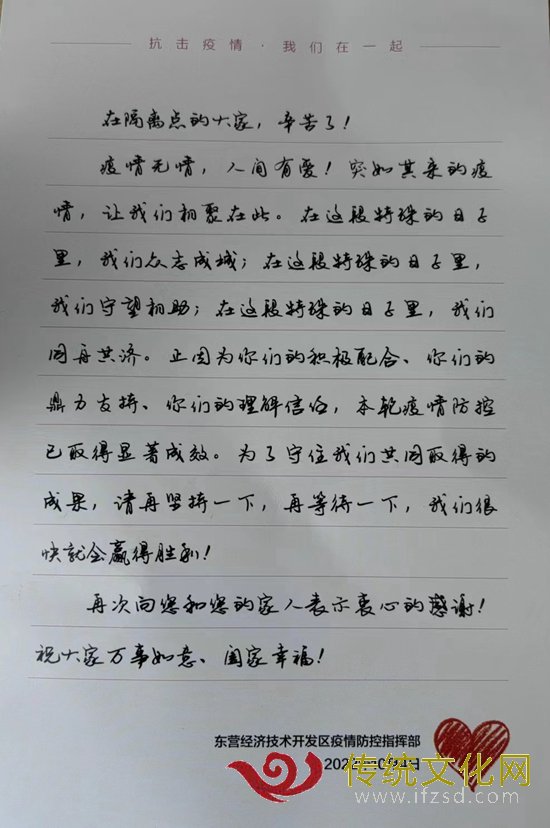 抗击疫情·我们在一起
在隔离点的大家，辛苦了！
疫情无情，人间有爱！突如其来的疫
情，让我们相聚在此。在这段特殊的日子
里，我们众志成城；在这段特殊的日子里，
我们守望相助；在这段特殊的日子里，我们
同舟共济。正因为你们的积极配合、你们的
鼎力支持、你们的理解信任，本轮疫情防控
已取得显著成效。为了守住我们共同取得的
成果，请再坚持一下，再等待一下，我们很
快就会赢得胜利！
再次向您和您的家人表示衷心的感谢！
祝大家万事如意、阖家幸福！
东营经济技术开发区疫情防控指挥部
传统文化网
www.ifzsd.com